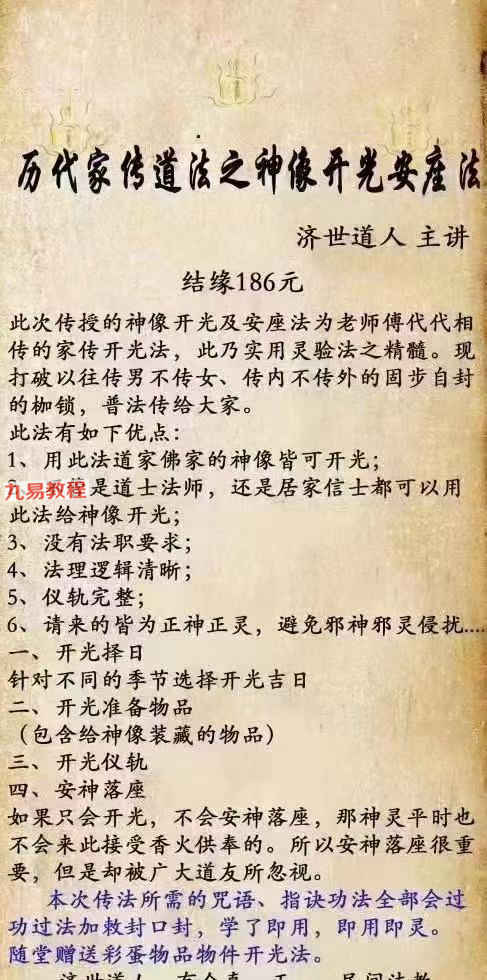 历代家传道法之神像开光安座法
济世道人 主讲
结缘186元
此次传授的神像开光及安座法为老师傅代代相
传的家传开光法，此乃实用灵验法之精髓。现
打破以往传男不传女、传内不传外的固步自封
的枷锁，普法传给大家。
此法有如下优点：
1、用此法道家佛家的神像皆可开光；
是道士法师，还是居家信士都可以用
九易教程
此法给神像开光；
3、没有法职要求；
4、法理逻辑清晰；
5、仪轨完整；
6、请来的皆为正神正灵，避免邪神邪灵侵扰....
一、开光择日
针对不同的季节选择开光吉日
二、开光准备物品
（包含给神像装藏的物品）
三、开光仪轨
四、安神落座
如果只会开光，不会安神落座，那神灵平时也
不会来此接受香火供奉的。所以安神落座很重
要，但是却被广大道友所忽视。
本次传法所需的咒语、指诀功法全部会过
功过法加敕封口封，学了即用，即用即灵。
随堂赠送彩蛋物品物件开光法。